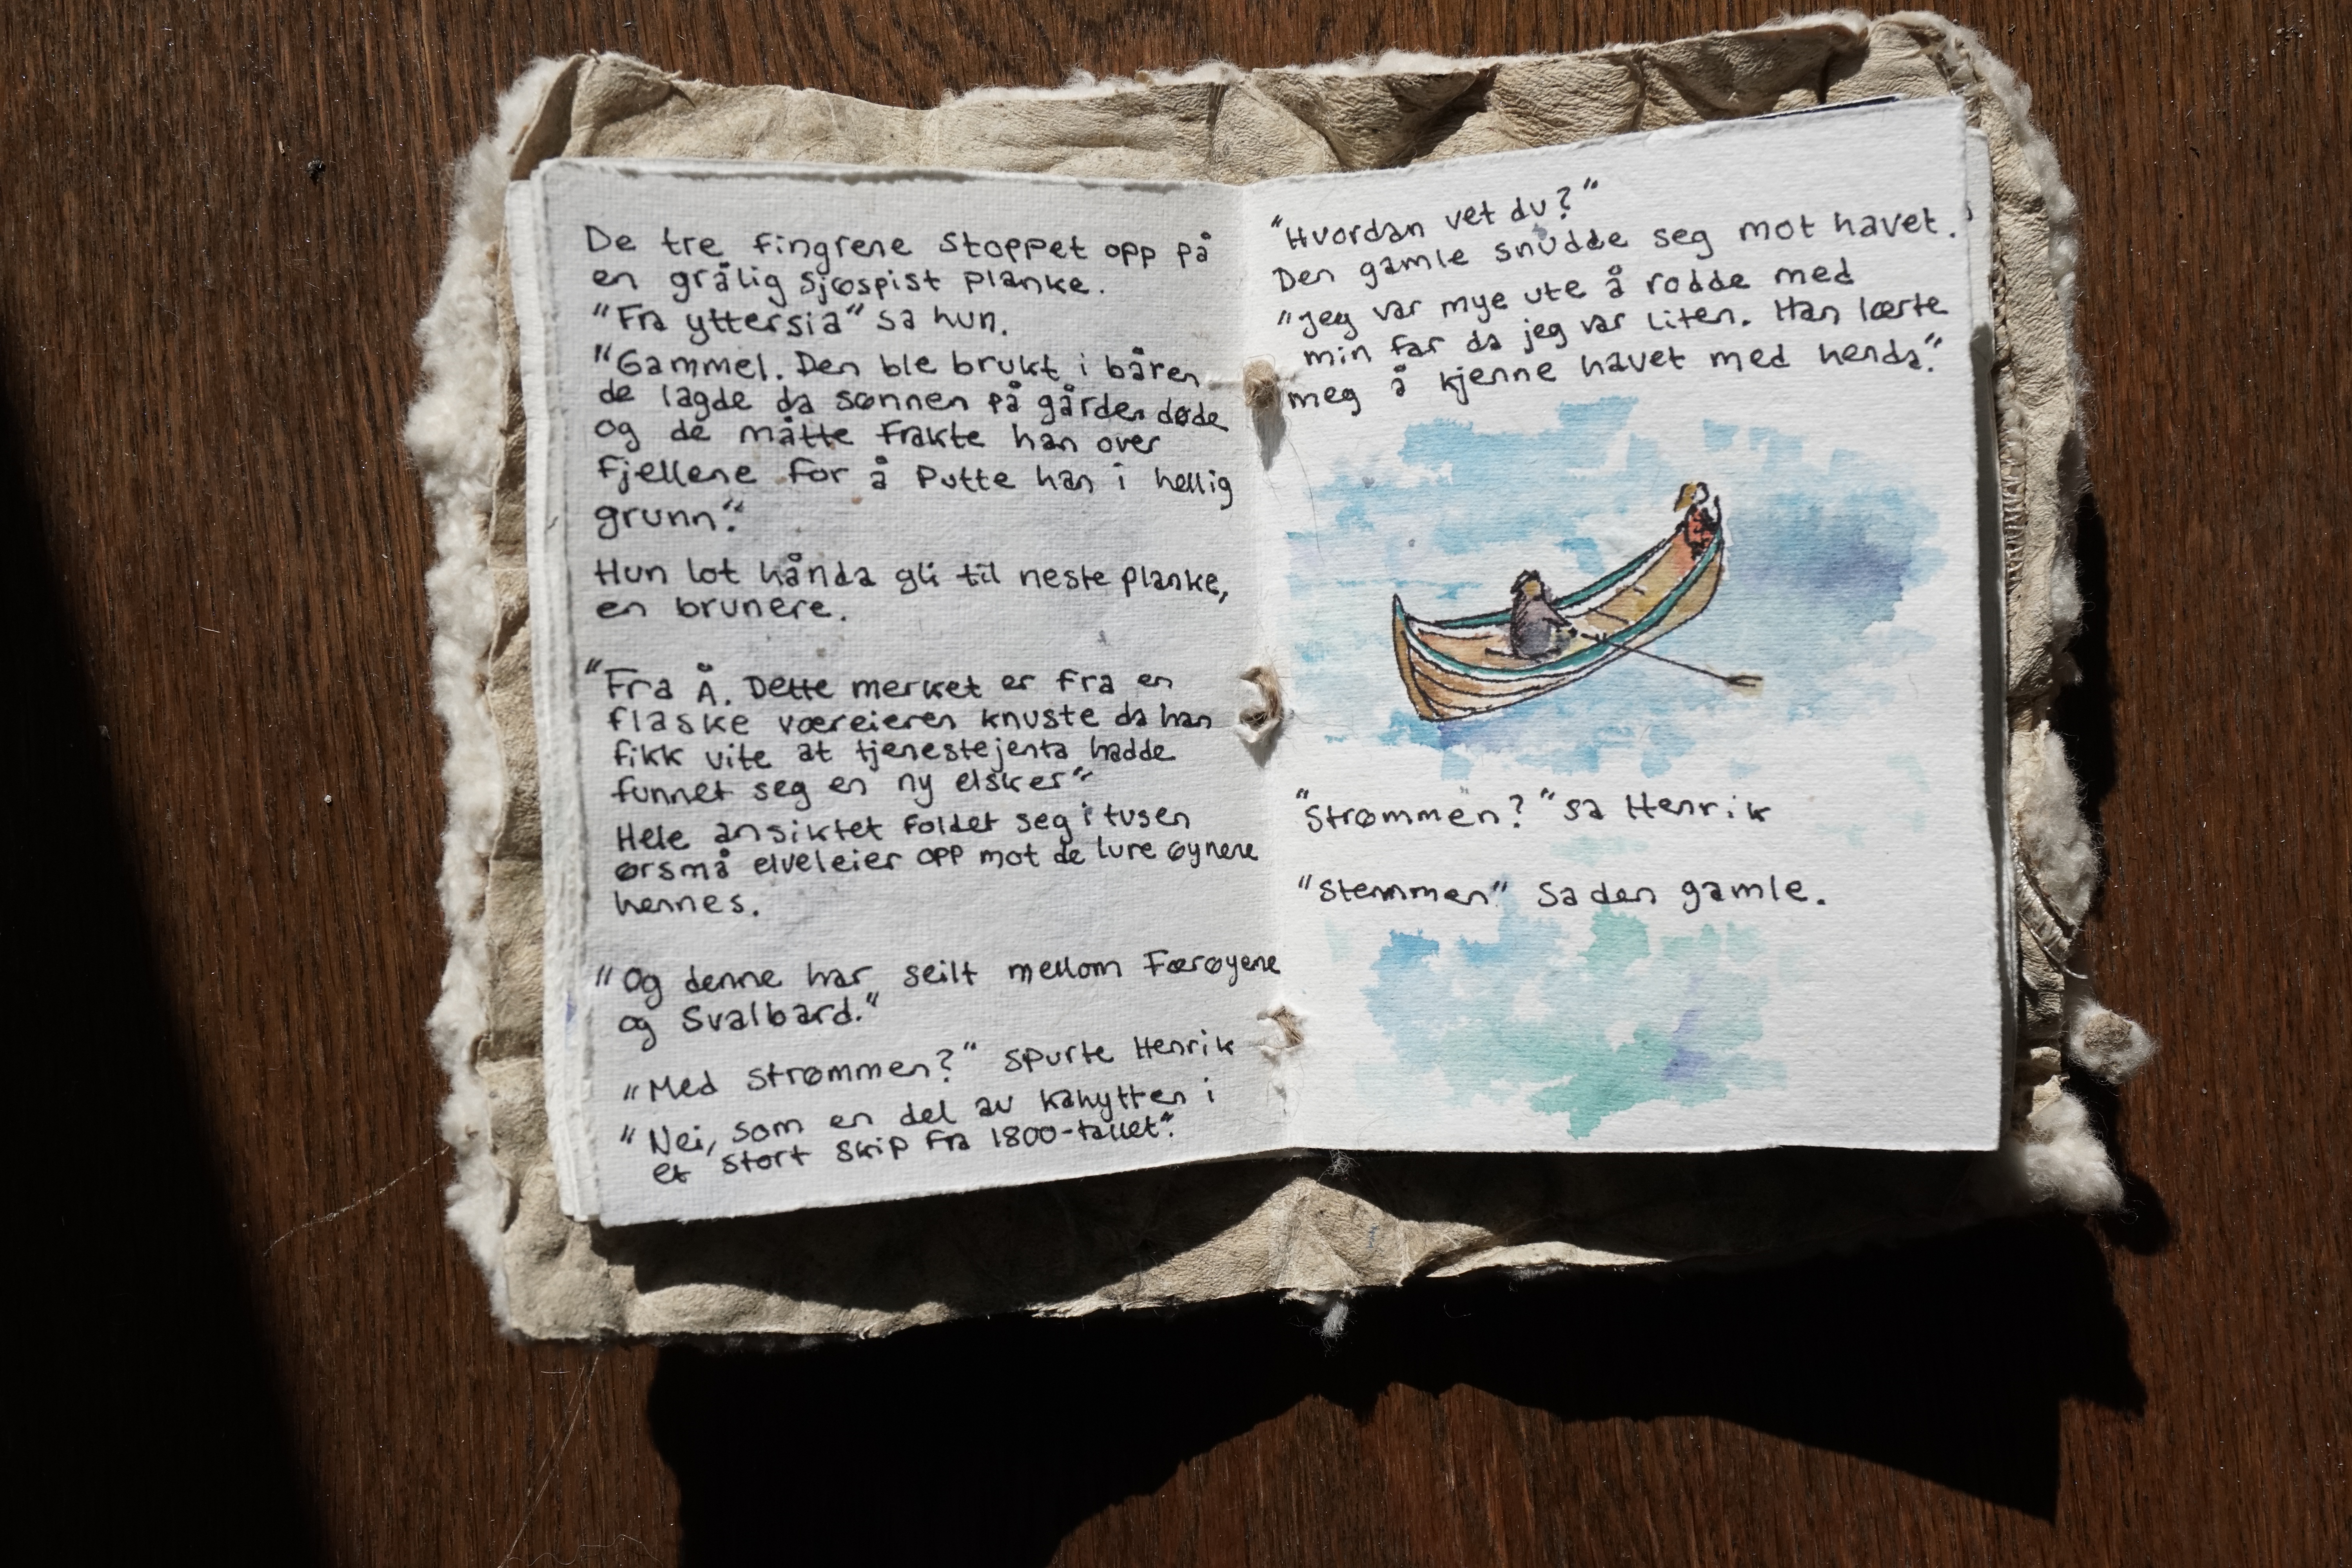 De tre fingrene stoppet opp på
en grålig sjøspist planke.
"Fra yttersia" sa hun.
"Gammel. Den ble brukt i båren
de lagde da sønnen på gården døde
og de måtte frakte han over
fjellene for å putte han i hellig
grunn."
Hun lot hånda gli til neste planke,
en brunere.
"Fra Å. Dette merket er fra en
flaske væreieren knuste da han
fikk vite at tjenestejenta hadde
funnet seg en ny elsker"
Hele ansiktet foldet seg i tusen
ørsmå elveleier opp mot de lure øynene
hennes.
"Og denne har seilt mellom Færøyene
og Svalbard."
"Med strømmen?" spurte Henrik
"Nei, som en del av kahytten i
et stort skip fra 1800-tallet."
"Hvordan vet du?"
Den gamle snudde seg mot havet.
"Jeg var mye ute å rodde med
min far da jeg var liten. Han lærte
meg å kjenne havet med henda."
"Strømmen?" sa Henrik
"Stemmen" sa den gamle.